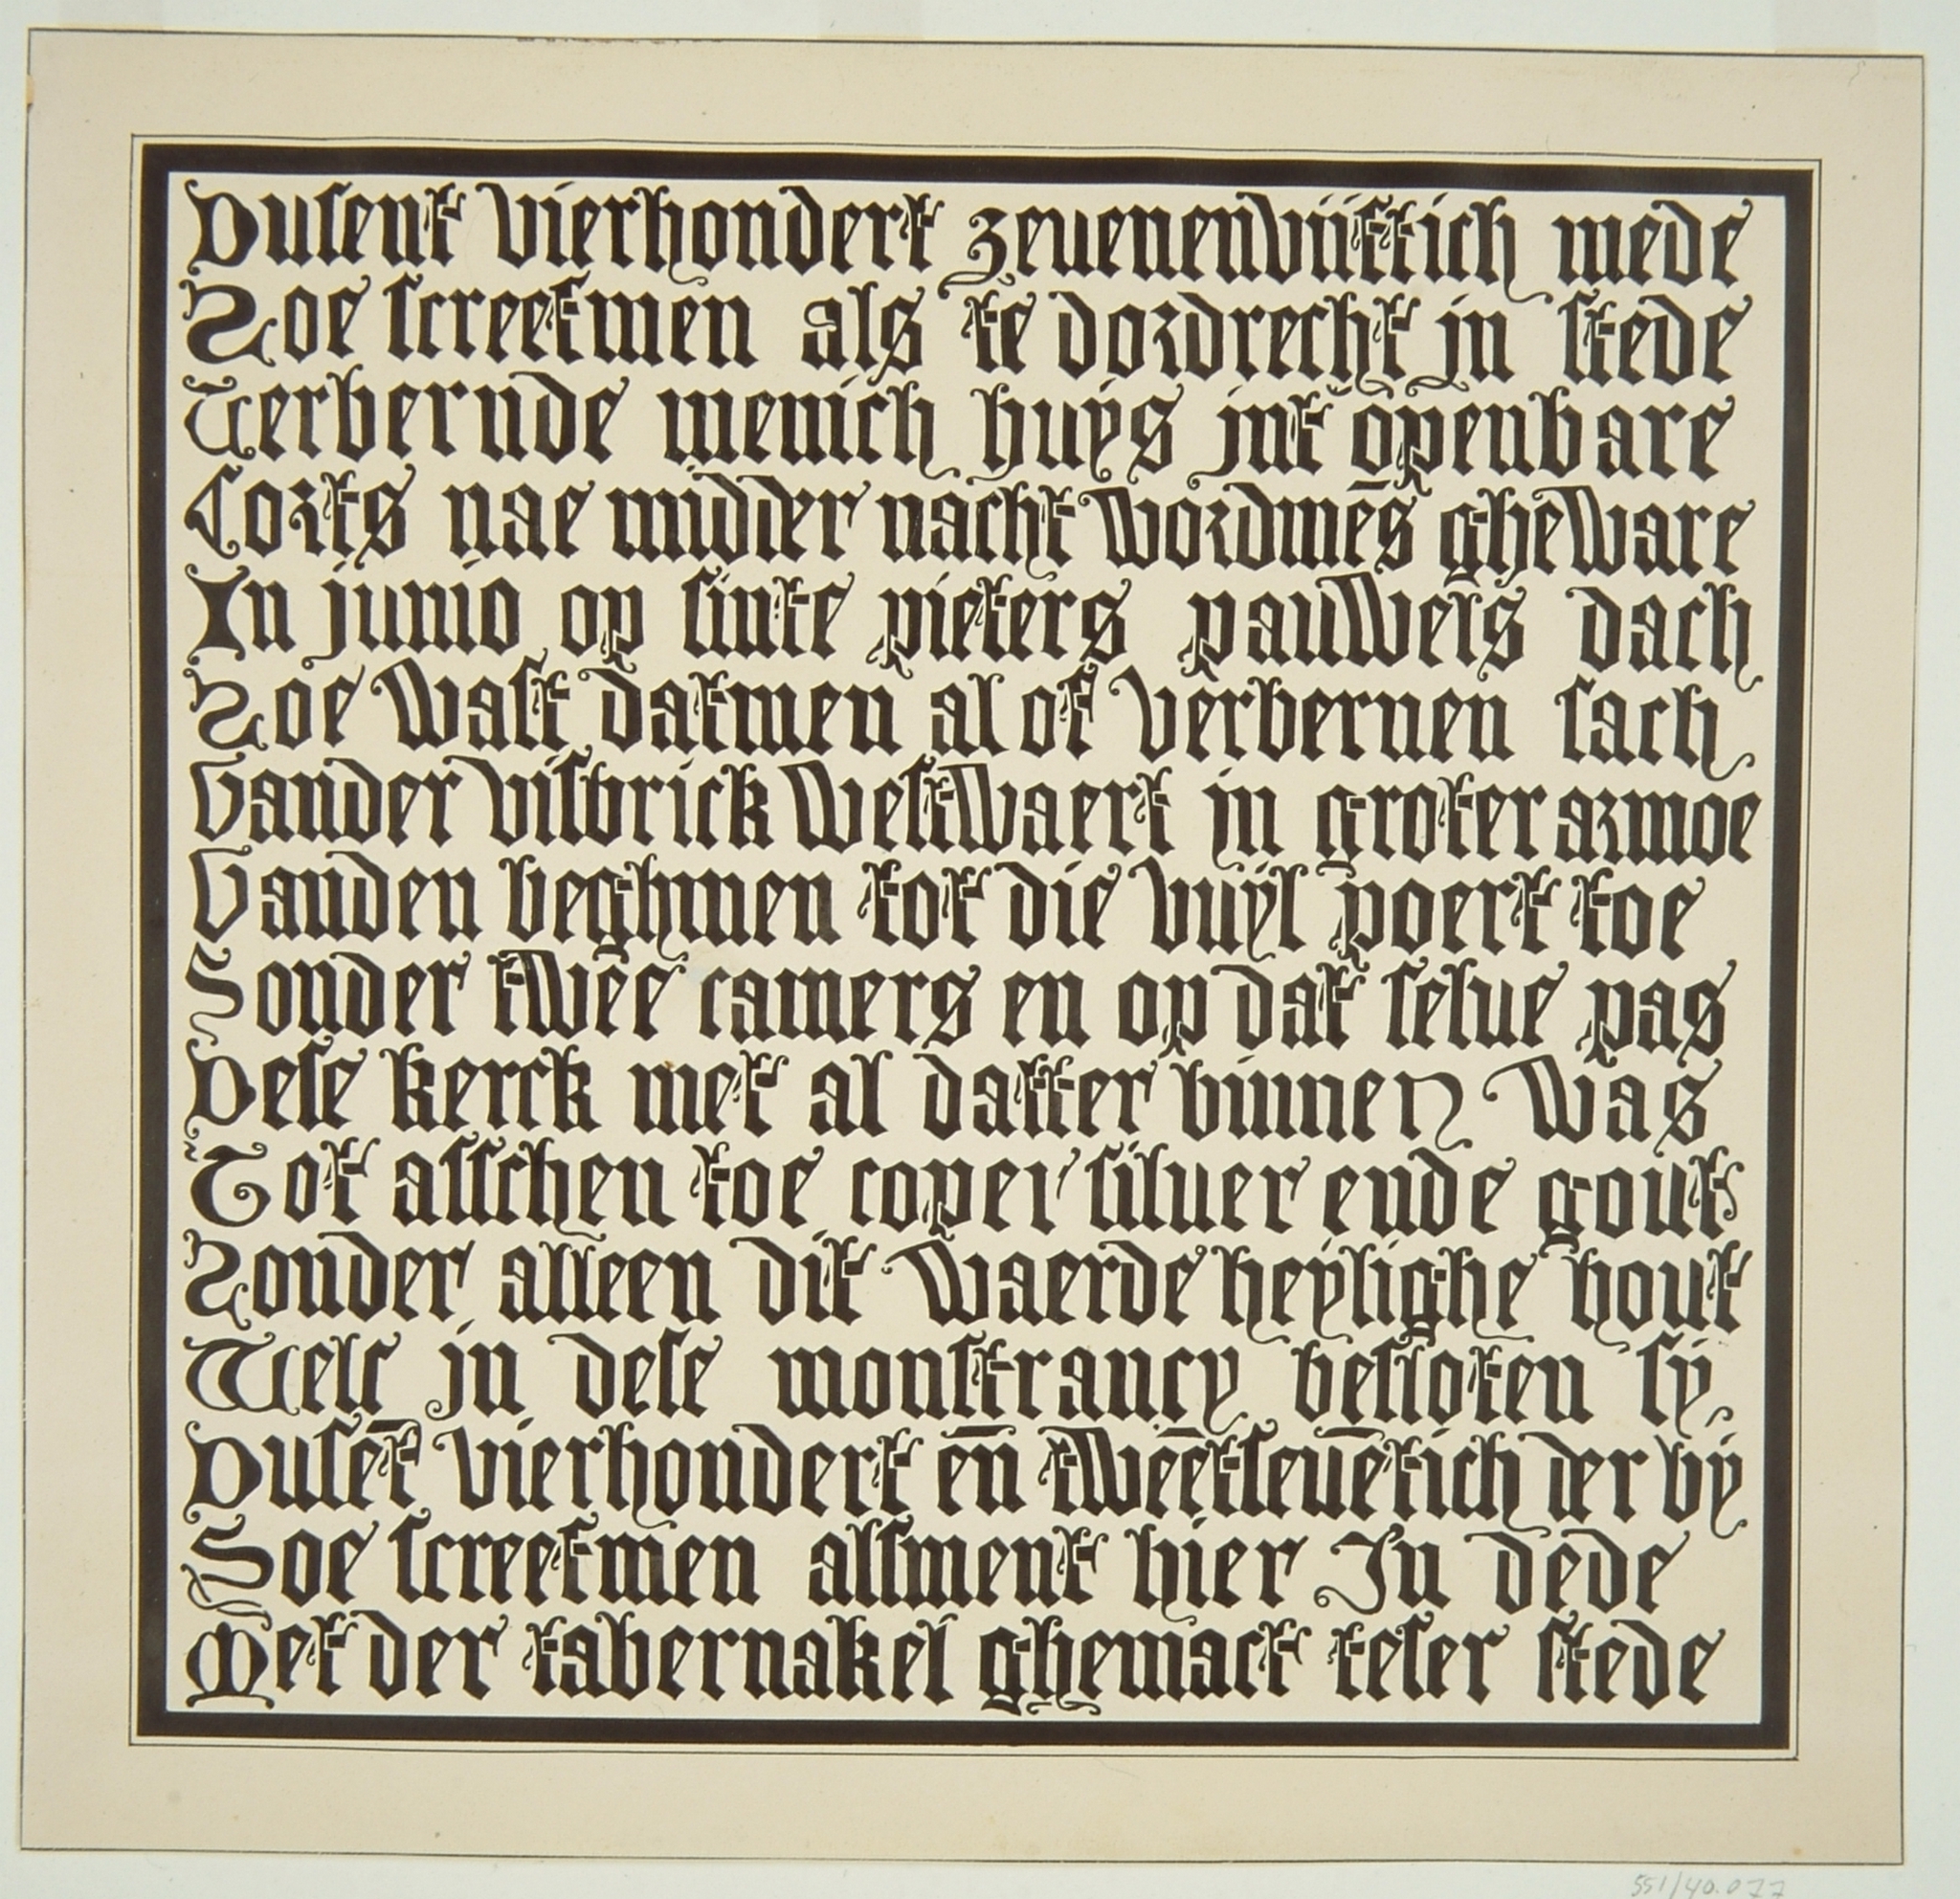 Dusent vierhondert zeuenenviiftich mede
Zoe screefmen als te dordrecht jn stede
Verbernde menich huys jnt openbare
Corts nae midder nacht wordmēs gheware
In junio op sinte pieters pauwels dach
Zoe wast datmen al of verbernen sach
Vander visbrick westwaert in groter armoe
Vanden beghinen tot die vuyl poert toe
Sonder twee camers en op dat selue pas
Dese kerck met al datter binnen was
Tot asschen toe coper siluer ende gout
Zonder alleen dit waerde heylighe hout
Welc jn dese monstrancy besloten sy
Dusēt vierhondert en̄ tweētseuētich der by
Soe screefmen alsment hier In dede
Met der tabernakel ghemact teser stede
551/40.077